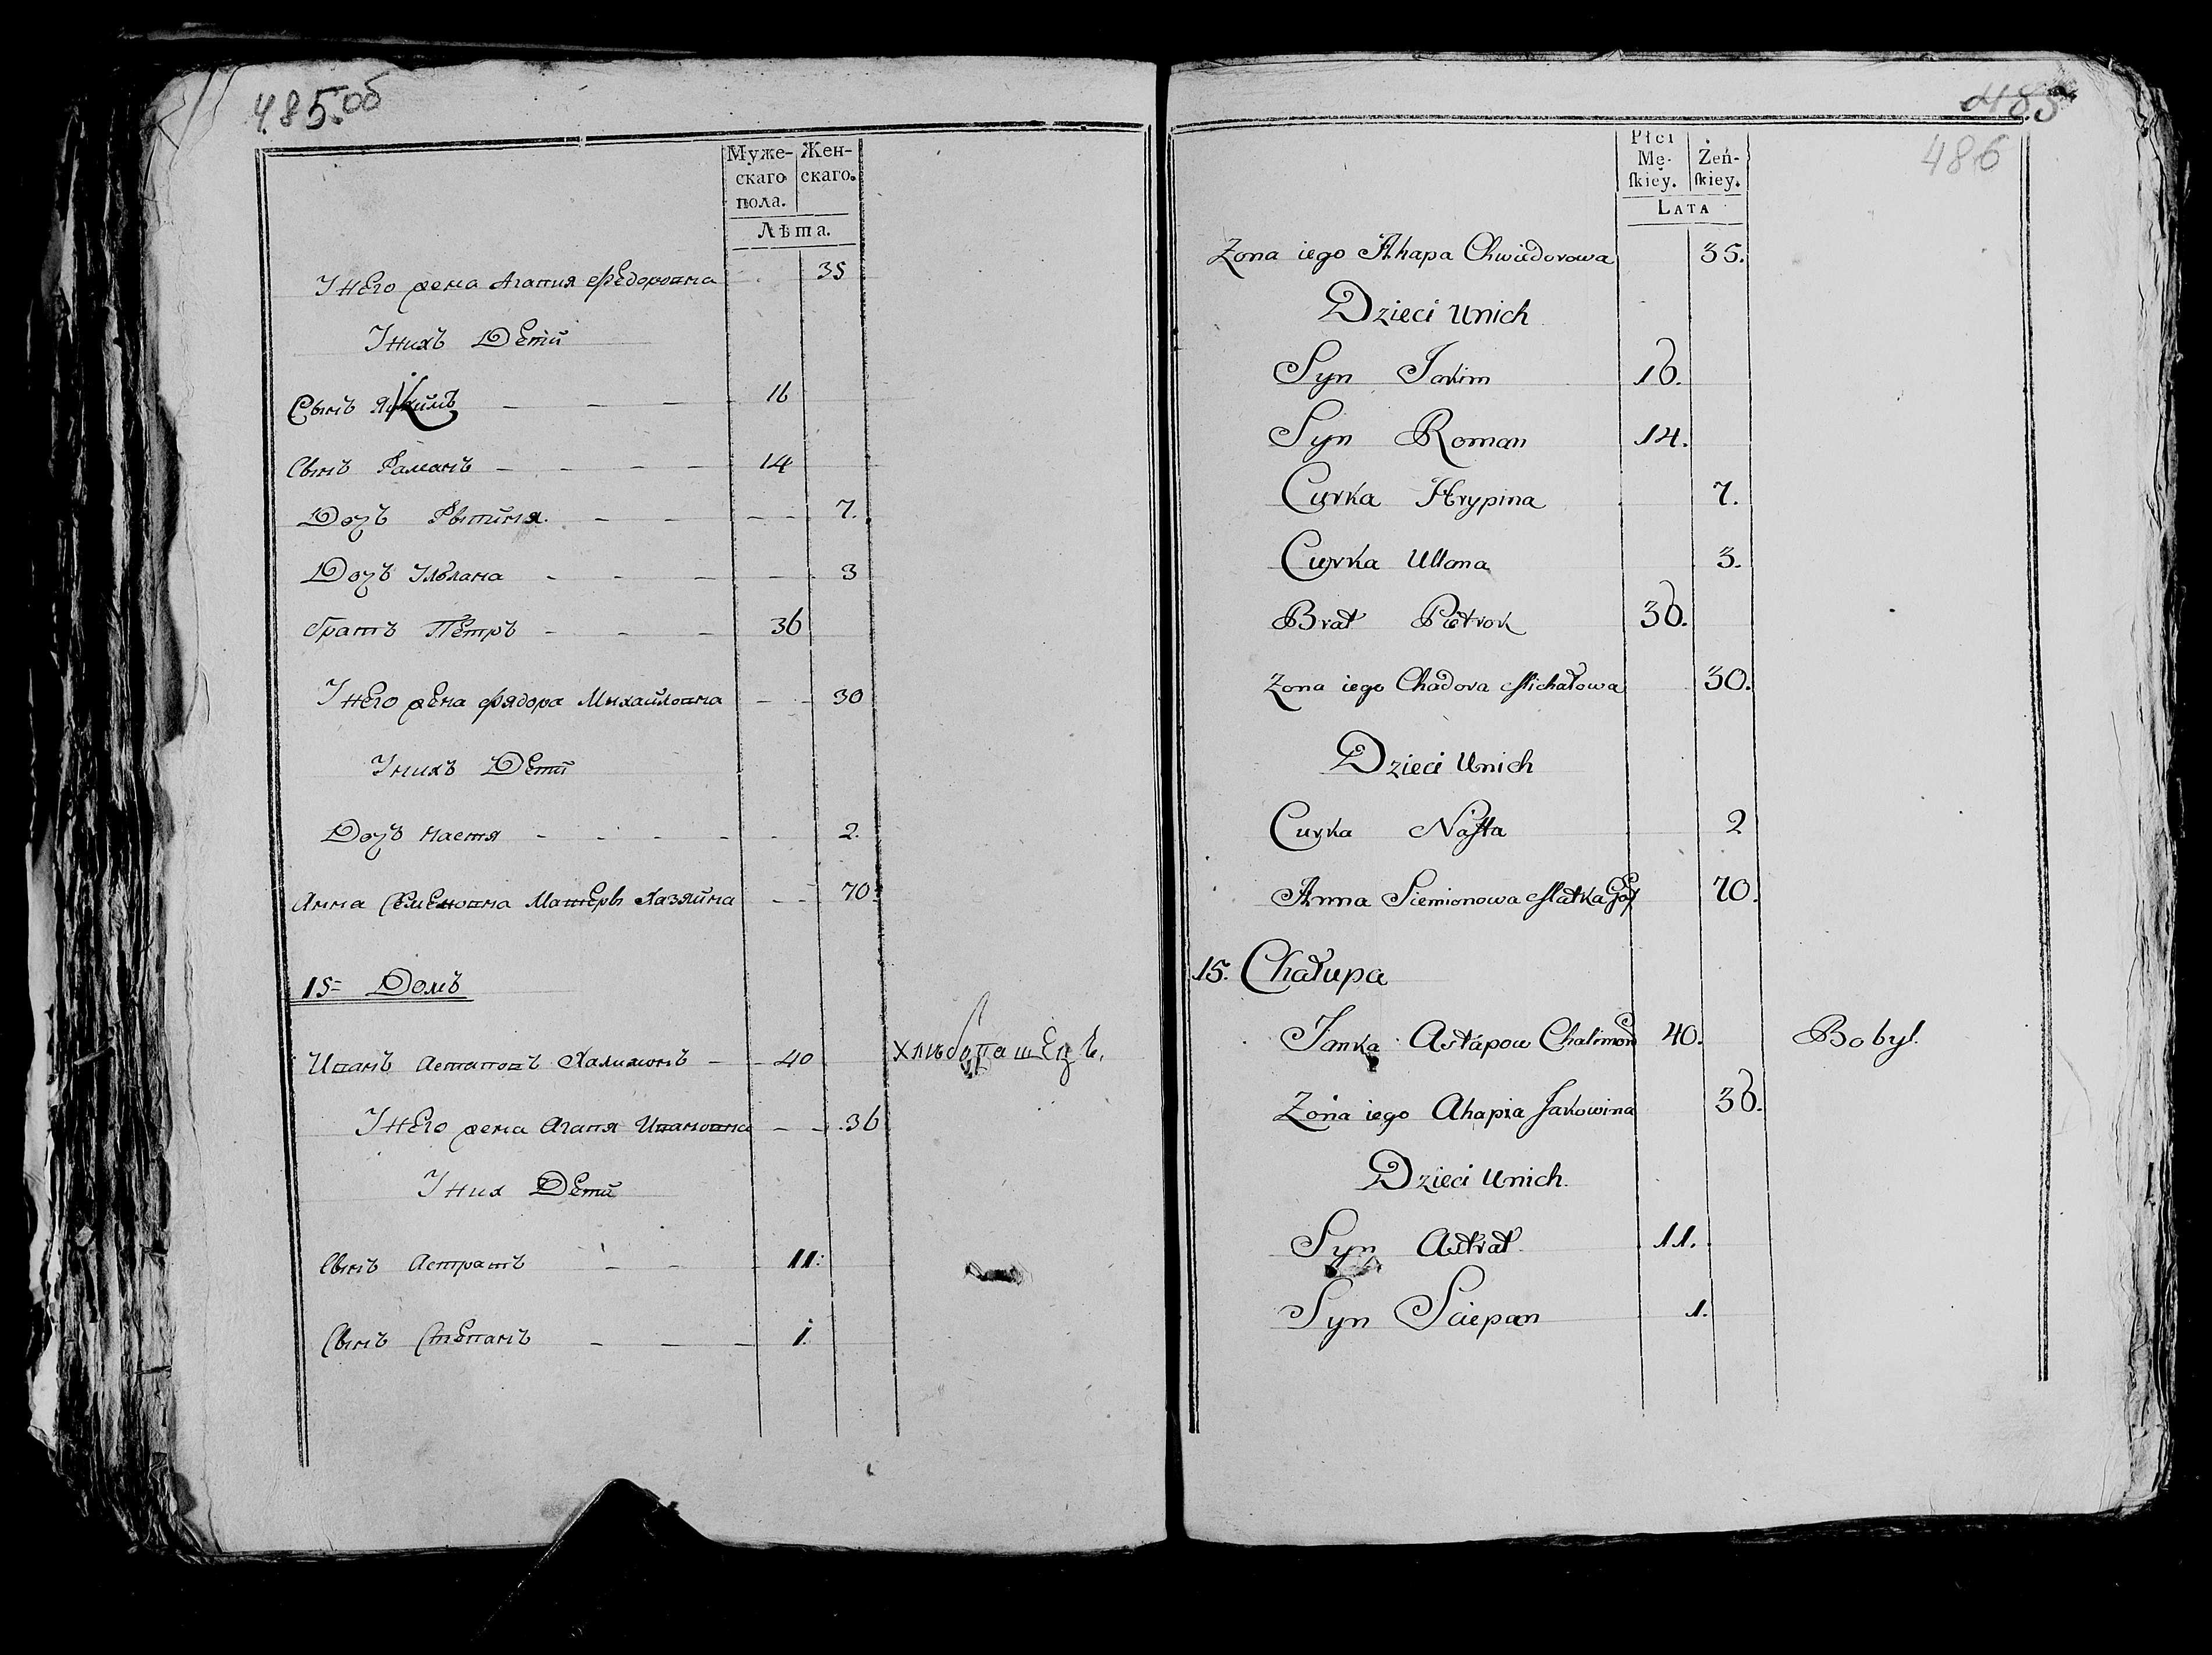 485.об
Муже- Жен-
скаго скаго.
пола.
Лѣта.
Унего жена Агапия Федоровна 35
Унихъ Дети
Сынъ Якимъ 16
Сынъ Раманъ 14
Дочъ Рыпиня. 7.
Дочъ Ульлана 3
братъ Петръ 36
Унего жена Фядора Михайловна 30
Унихъ Дети
Дочъ Настя 2.
Анна Семеновна Матерь Хазяина 70.
15= Домъ
Иванъ Астаповъ Халимонъ 40 хлибопашецъ.
Унего жена Агапя Ивановна 36
Уних Дети
Сынъ Астратъ 11:
Сынъ Степанъ 1.
485
486
Płci
Mę- Żeń-
ſkiey. ſkiey.
LATA
Zona iego Ahapa Chwiedorowa 35.
Dzieci Unich
Syn Jakim 16.
Syn Roman 14.
Curka Hrypina 7.
Curka Ullana 3.
Brat Pietrok 36.
Zona iego Chadora Michałowa 30.
Dzieci Unich
Curka Nasta 2
Anna Siemionowa Matka Gos 70.
15. Chałupa
Janka Astapow Chalimon 40. Bobyl.
Zona iego Ahapia Jakowina 36.
Dzieci Unich.
Syn Astrat 11.
Syn Sciepan 1.